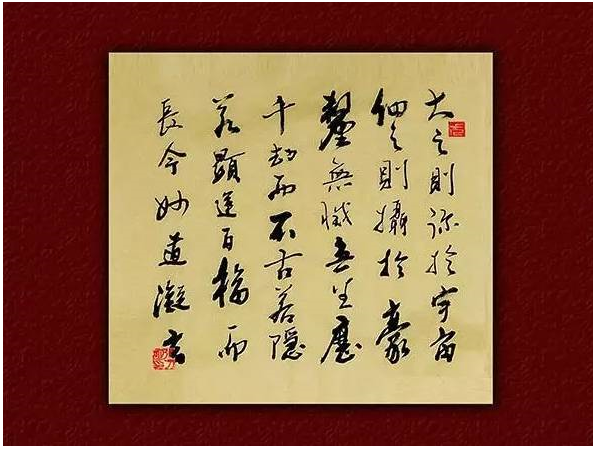 大之則弥於宇宙
細之則攝於豪
釐無滅无生歷
千劫而不古若隱
若顯運百福而
長今妙道凝玄